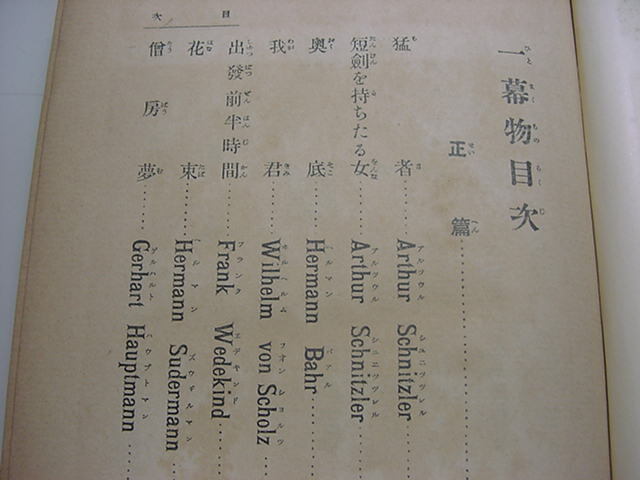 一幕物目次
正篇
猛者 Arthur Schnitzler
短劍を持ちたる女 Arthur Schnitzler
奧底 Hermann Bahr
我君 Wilhelm von Scholz
出發前半時間 Frank Wedekind
花束 Hermann Sudermann
僧房夢 Gerhart Hauptmann
目次